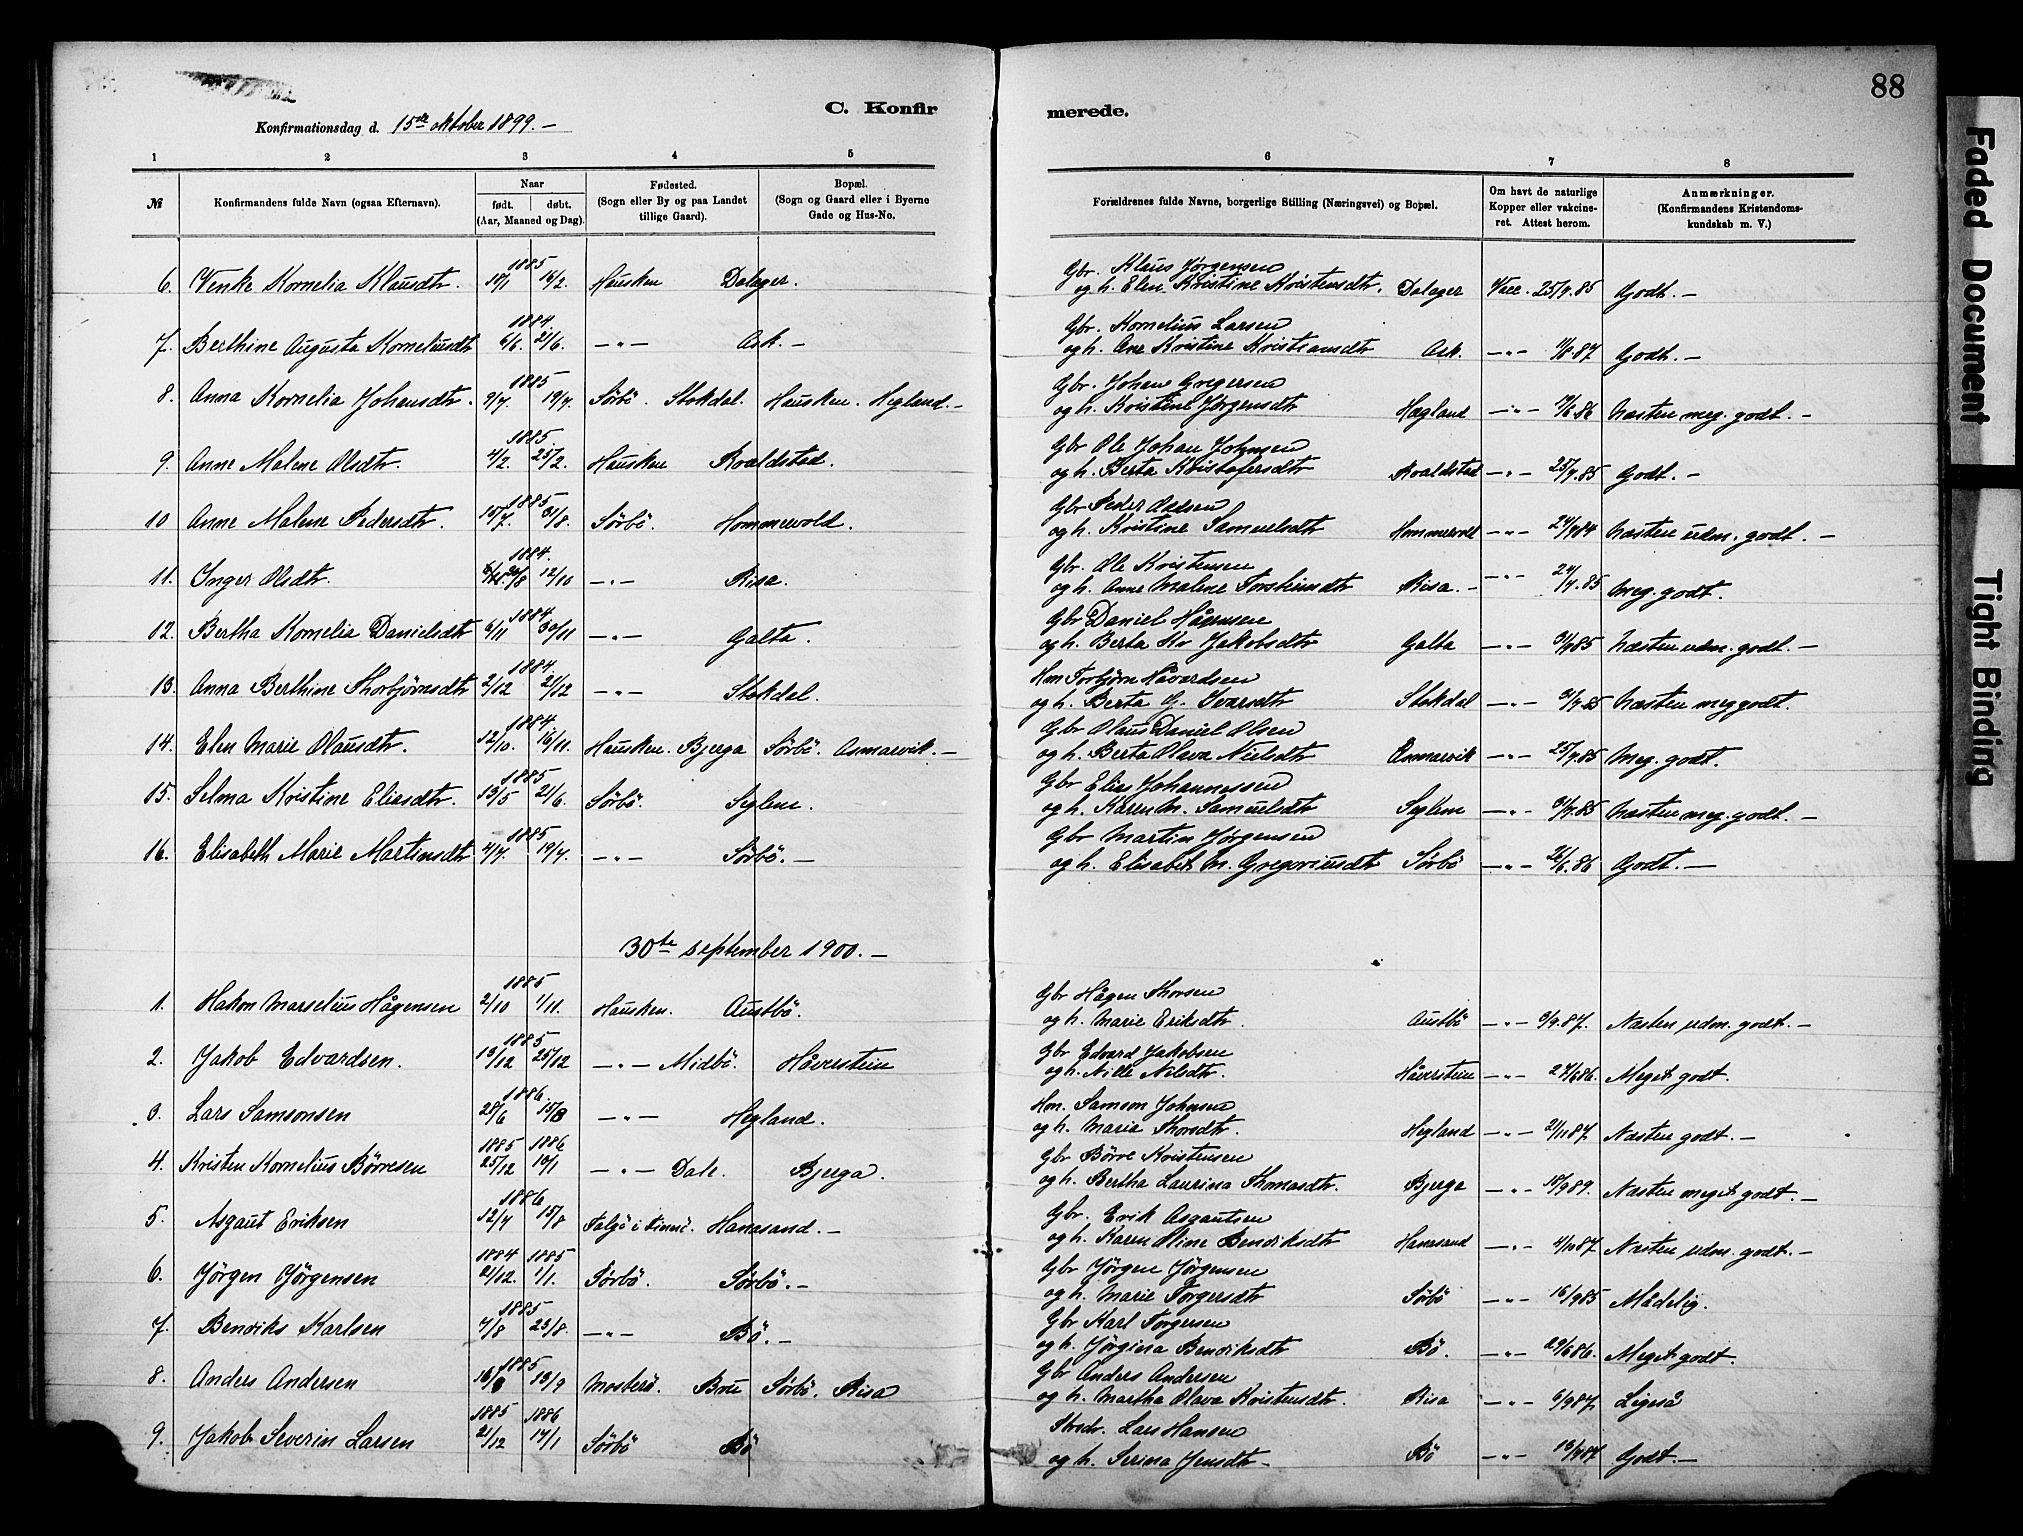 88
C. Konfirmerede.
Konfirmationsdag d. 15de oktober 1899. –
1 2 3 4 5 6 7 8
№ Konfirmandens fulde Navn (ogsaa Efternavn). Naar født. døbt. (Aar, Maaned og Dag). Fødested. (Sogn eller By og paa Landet tillige Gaard). Bopæl. (Sogn og Gaard eller i Byerne Gade og Hus-No. Forældrenes fulde Navne, borgerlige Stilling (Næringsvei) og Bopæl. Om havt de naturlige Kopper eller vakcineret. Attest herom. Anmærkninger. (Konfirmandens Kristendomskundskab m. V.)
1885 Gbr. Klaus Jørgensen
6. Venke Kornelia Klausdtr. 18/1 16/2. Hausken Dalager. og h. Elen Kristine Kristensdtr. Dalager Vacc. 25/9.85 Godt. –
1884. Gbr. Kornelius Larsen
7. Berthine Augusta Korneliusdtr 6/6. 21/6. –"– Ask. – og h. Ane Kristine Kristiansdtr Ask. –"– 11/8.87 Godt. –
1885 Gbr. Johan Gregersen
8. Anna Kornelia Johansdtr. 9/7. 19/7. Sørbö. Stokdal. Hausken. Hegland. – og h. Kristine Jørgensdtr Hægland –"– 7/6.86 Næsten meg. godt. –
1885. Gbr Ole Johan Johnsen
9. Anne Malene Olsdtr. 4/2. 25/2. Hausken Kvaldstad. og h. Berta Kristofersdtr Kvaldstad –"– 25/9.85 Godt. –
1885 Gbr Peder Aadsen
10 Anne Malene Pedersdtr. 15/7. 31/8. Sørbö. Hommervold. og h. Kristine Samuelsdtr Hommervold –"– 24/9 84 Næsten udm. godt. –
1884. Gbr. Ole Kristensen
11. Inger Olsdtr. 30/8 12/10 –"– Risa. og h. Anne Malene Torsteinsdtr Risa. – –"– 24/9.85 Meg. godt.
1884 Gbr Daniel Hågensen
12. Bertha Kornelia Danielsdtr 4/11 30/11 –"– Galta. og h. Berta Kr Jakobsdtr Galta –"– 31/9 85 Næsten udm. godt. –
1884 Hm Torbjørn Håvardsen
13. Anna Berthine Thorbjörnsdtr 2/12 21/12 –"– Stokdal. og h. Berta G. Ivarsdtr Stokdal –"– 31/9.85 Næsten meg godt.
1884 Gbr Olaus Daniel Olsen
14. Elen Marie Olausdtr. 12/10. 16/11. Hausken. Bjerga Sørbö. Asmarvik. – og h. Berta Olava Nielsdtr Asmarvik –"– 25/9.85 Meg. godt.
1885 Gbr Elias Johannessen
15. Selma Kristine Eliasdtr. 13/5 21/6. Sørbö. Seglem. og h. Karen M. Samuelsdtr Seglem –"– 31/9.85 Næsten meg. godt. –
1885 Gbr Martin Jørgensen
16. Elisabeth Marie Martinsdtr 4/7. 19/7. –"– Sørbö. – og h. Elisabet M. Gregoriusdtr Sørbö –"– 26/6.86 Godt. –
30te september 1900. –
1885 Gbr Hågen Thorsen
1. Hakon Marselius Hågensen 2/10 1/11. Hausken. Austbö. og h. Marie Eriksdtr. Austbö –"– 9/9.87. Næsten udm. godt. –
1885 Gbr Edvard Jakobsen
2. Jakob Edvardsen. 13/12 25/12 –"– Midbö. Håverstein og h. Nille Nilsdtr. Håverstein –"– 27/6 86. Meget godt.
1886. Hm. Samson Johnsen
3. Lars Samsonsen 25/6 15/8 –"– Hegland. og h. Maria Thorsdtr. Hegland –"– 2/11 87. Næsten godt. –
1885 1886 Gbr Børre Kristensen
4. Kristen Kornelius Börresen 25/12 10/1 –"– Dale. Bjerga. og h. Bertha Laurina Thomasdtr. Bjerga –"– 18/9 89. Næsten meget godt. –
1886 Gbr. Erik Asgautsen
5. Asgaut Eriksen 12/7 15/8 Talgö i Finnö. Hanasand. – og h. Karen Oline Bendiksdtr Hanasand –"– 4/10 87. Næsten udm. godt. –
1884 1885 Gbr Jörgen Jörgensen
6. Jörgen Jörgensen 21/12. 1/1. Sørbö. Sørbö. – og h. Marie Torgersdtr Sørbö –"– 16/9 85 Mådelig.
1885 Gbr Karl Torgersen
7. Bendiks Karlsen 4/8 23/8. –"– Bö. – og h. Jørgina Bendiksdtr Bö. –"– 29/6 86. Meget godt.
1885 Gbr Anders Andersen
8. Anders Andersen 16/8 13/9 Mosterö. Bru Sørbö. Risa og h. Martha Olava Kristensdtr. Risa –"– 6/9 87. Ligeså
1885 1886 Lars Hansen
9. Jakob Severin Larsen 21/12 17/1 Sørbö Bö og h. Serina Jensdtr – Bö –"– 13/9 87 Godt. –
Faded Document
Tight Binding